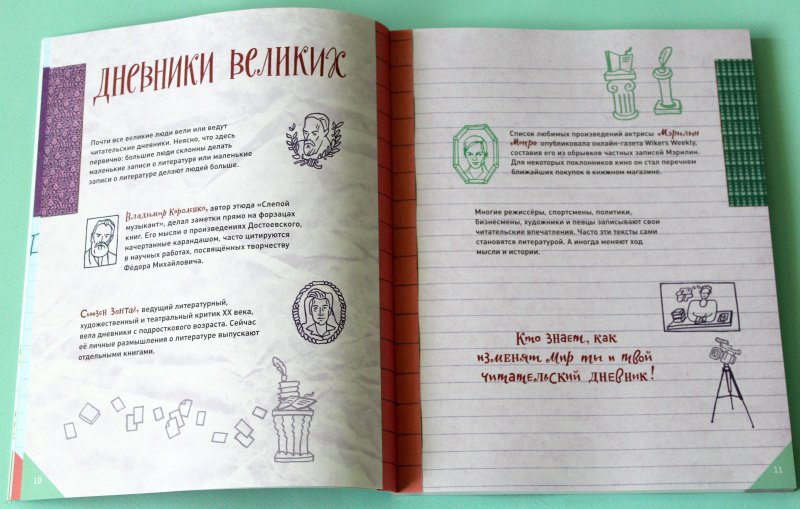 ДНЕВНИКИ ВЕЛИКИХ
Почти все великие люди вели или ведут
читательские дневники. Неясно, что здесь
первично: большие люди склонны делать
маленькие записи о литературе или маленькие
записи о литературе делают людей больше.
Владимир Короленко, автор этюда «Слепой
музыкант», делал заметки прямо на форзацах
книг. Его мысли о произведениях Достоевского,
начертанные карандашом, часто цитируются
в научных работах, посвящённых творчеству
Фёдора Михайловича.
Сьюзен Зонтаг, ведущий литературный,
художественный и театральный критик XX века,
вела дневники с подросткового возраста. Сейчас
её личные размышления о литературе выпускают
отдельными книгами.
10
Список любимых произведений актрисы Мэрилин
Монро опубликовала онлайн-газета Wikers Weekly,
составив его из обрывков частных записей Мэрилин.
Для некоторых поклонников кино он стал перечнем
ближайших покупок в книжном магазине.
Многие режиссёры, спортсмены, политики,
бизнесмены, художники и певцы записывают свои
читательские впечатления. Часто эти тексты сами
становятся литературой. А иногда меняют ход
мысли и истории.
Кто знает, как
изменят мир ты и твой
читательский дневник!
11